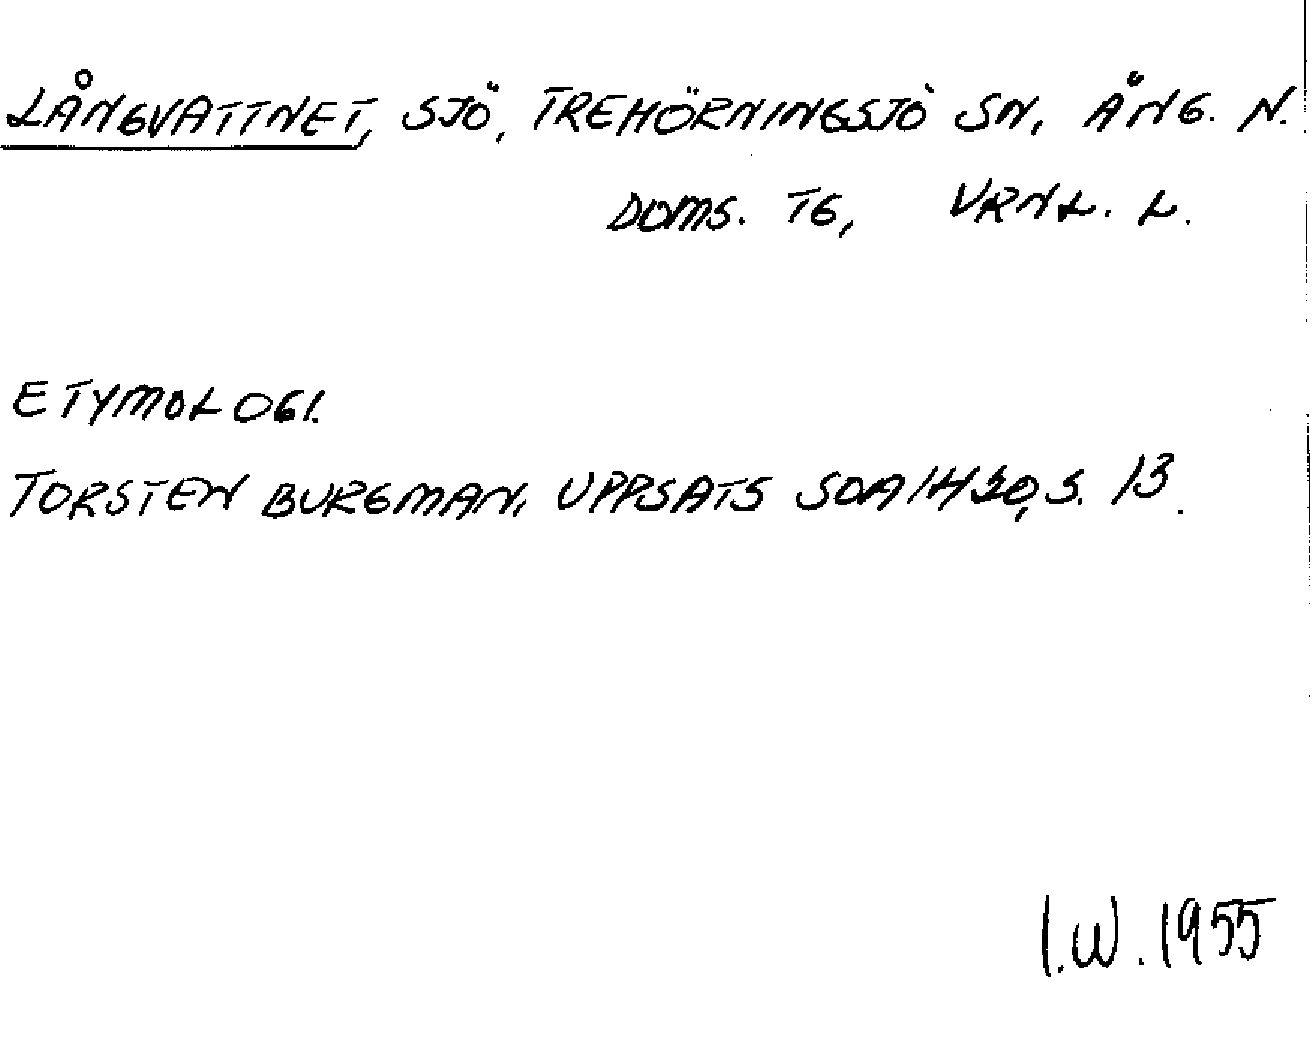 LÅNGVATTNET, SJÖ, TREHÖRNINGSJÖ SN, ÅNG. N.
DOMS. TG, VRNL. L.
ETYMOLOGI.
TORSTEN BURGMAN, UPPSATS SOA 1420, S. 13.
I.W. 1955